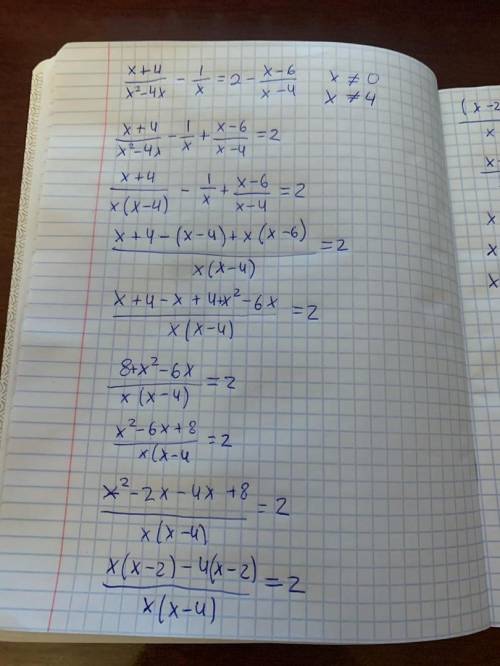 (x+4)/(x²-4x) - 1/x = 2 - (x-6)/(x-4) x ≠ 0
x ≠ 4
(x+4)/(x²-4x) - 1/x + (x-6)/(x-4) = 2
(x+4)/(x(x-4)) - 1/x + (x-6)/(x-4) = 2
(x+4-(x-4)+x(x-6))/(x(x-4)) = 2
(x+4-x+4+x²-6x)/(x(x-4)) = 2
(8+x²-6x)/(x(x-4)) = 2
(x²-6x+8)/(x(x-4) = 2
(x²-2x-4x+8)/(x(x-4)) = 2
(x(x-2)-4(x-2))/(x(x-4)) = 2
(x-2
x
x
x
x
x